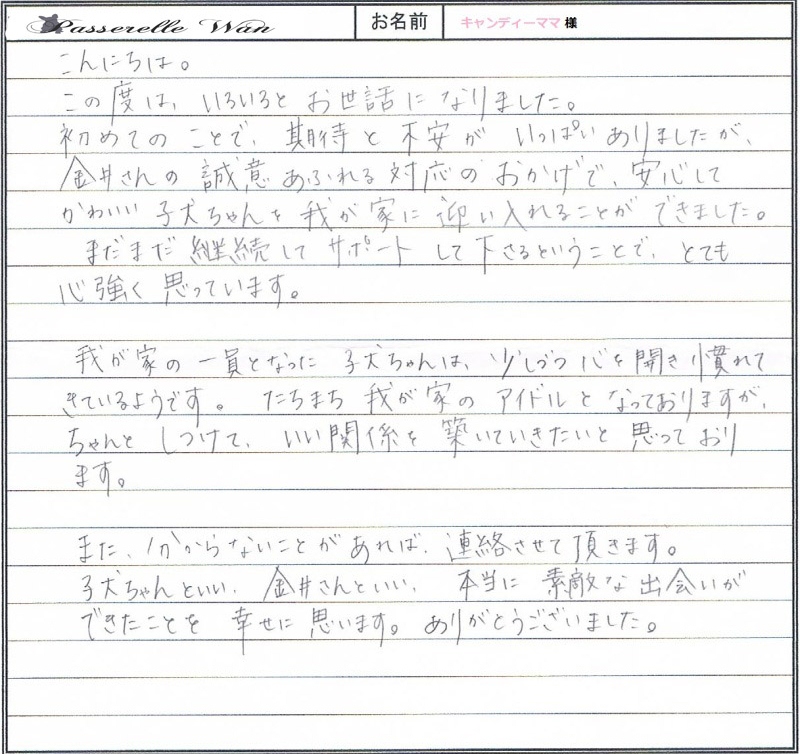 Passerelle Wan お名前 キャンディーママ 様
こんにちは。
この度は、いろいろと お世話に なりました。
初めての ことで、期待と 不安が いっぱい ありましたが、
金井さんの 誠意 あふれる 対応の おかげで、安心して
かわいい 子犬ちゃんを 我が家に 迎い入れることが できました。
まだまだ 継続して サポート して下さるということで、とても
心強く 思っています。
我が家の 一員となった 子犬ちゃんは、少しづつ 心を 開き 慣れて
きているようです。 たちまち 我が家の アイドルと なっておりますが、
ちゃんと しつけて、いい関係を 築いていきたいと 思って おり
ます。
また、分からないことが あれば、連絡させて 頂きます。
子犬ちゃんといい、金井さんといい、本当に 素敵な 出会いが
できたことを 幸せに 思います。ありがとうございました。